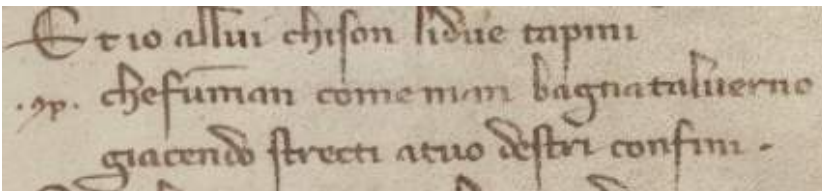 Et io allui chison lidue tapini
.9p. chefuman come man bagnata luerno
giacendo strecti atuo destri confini .